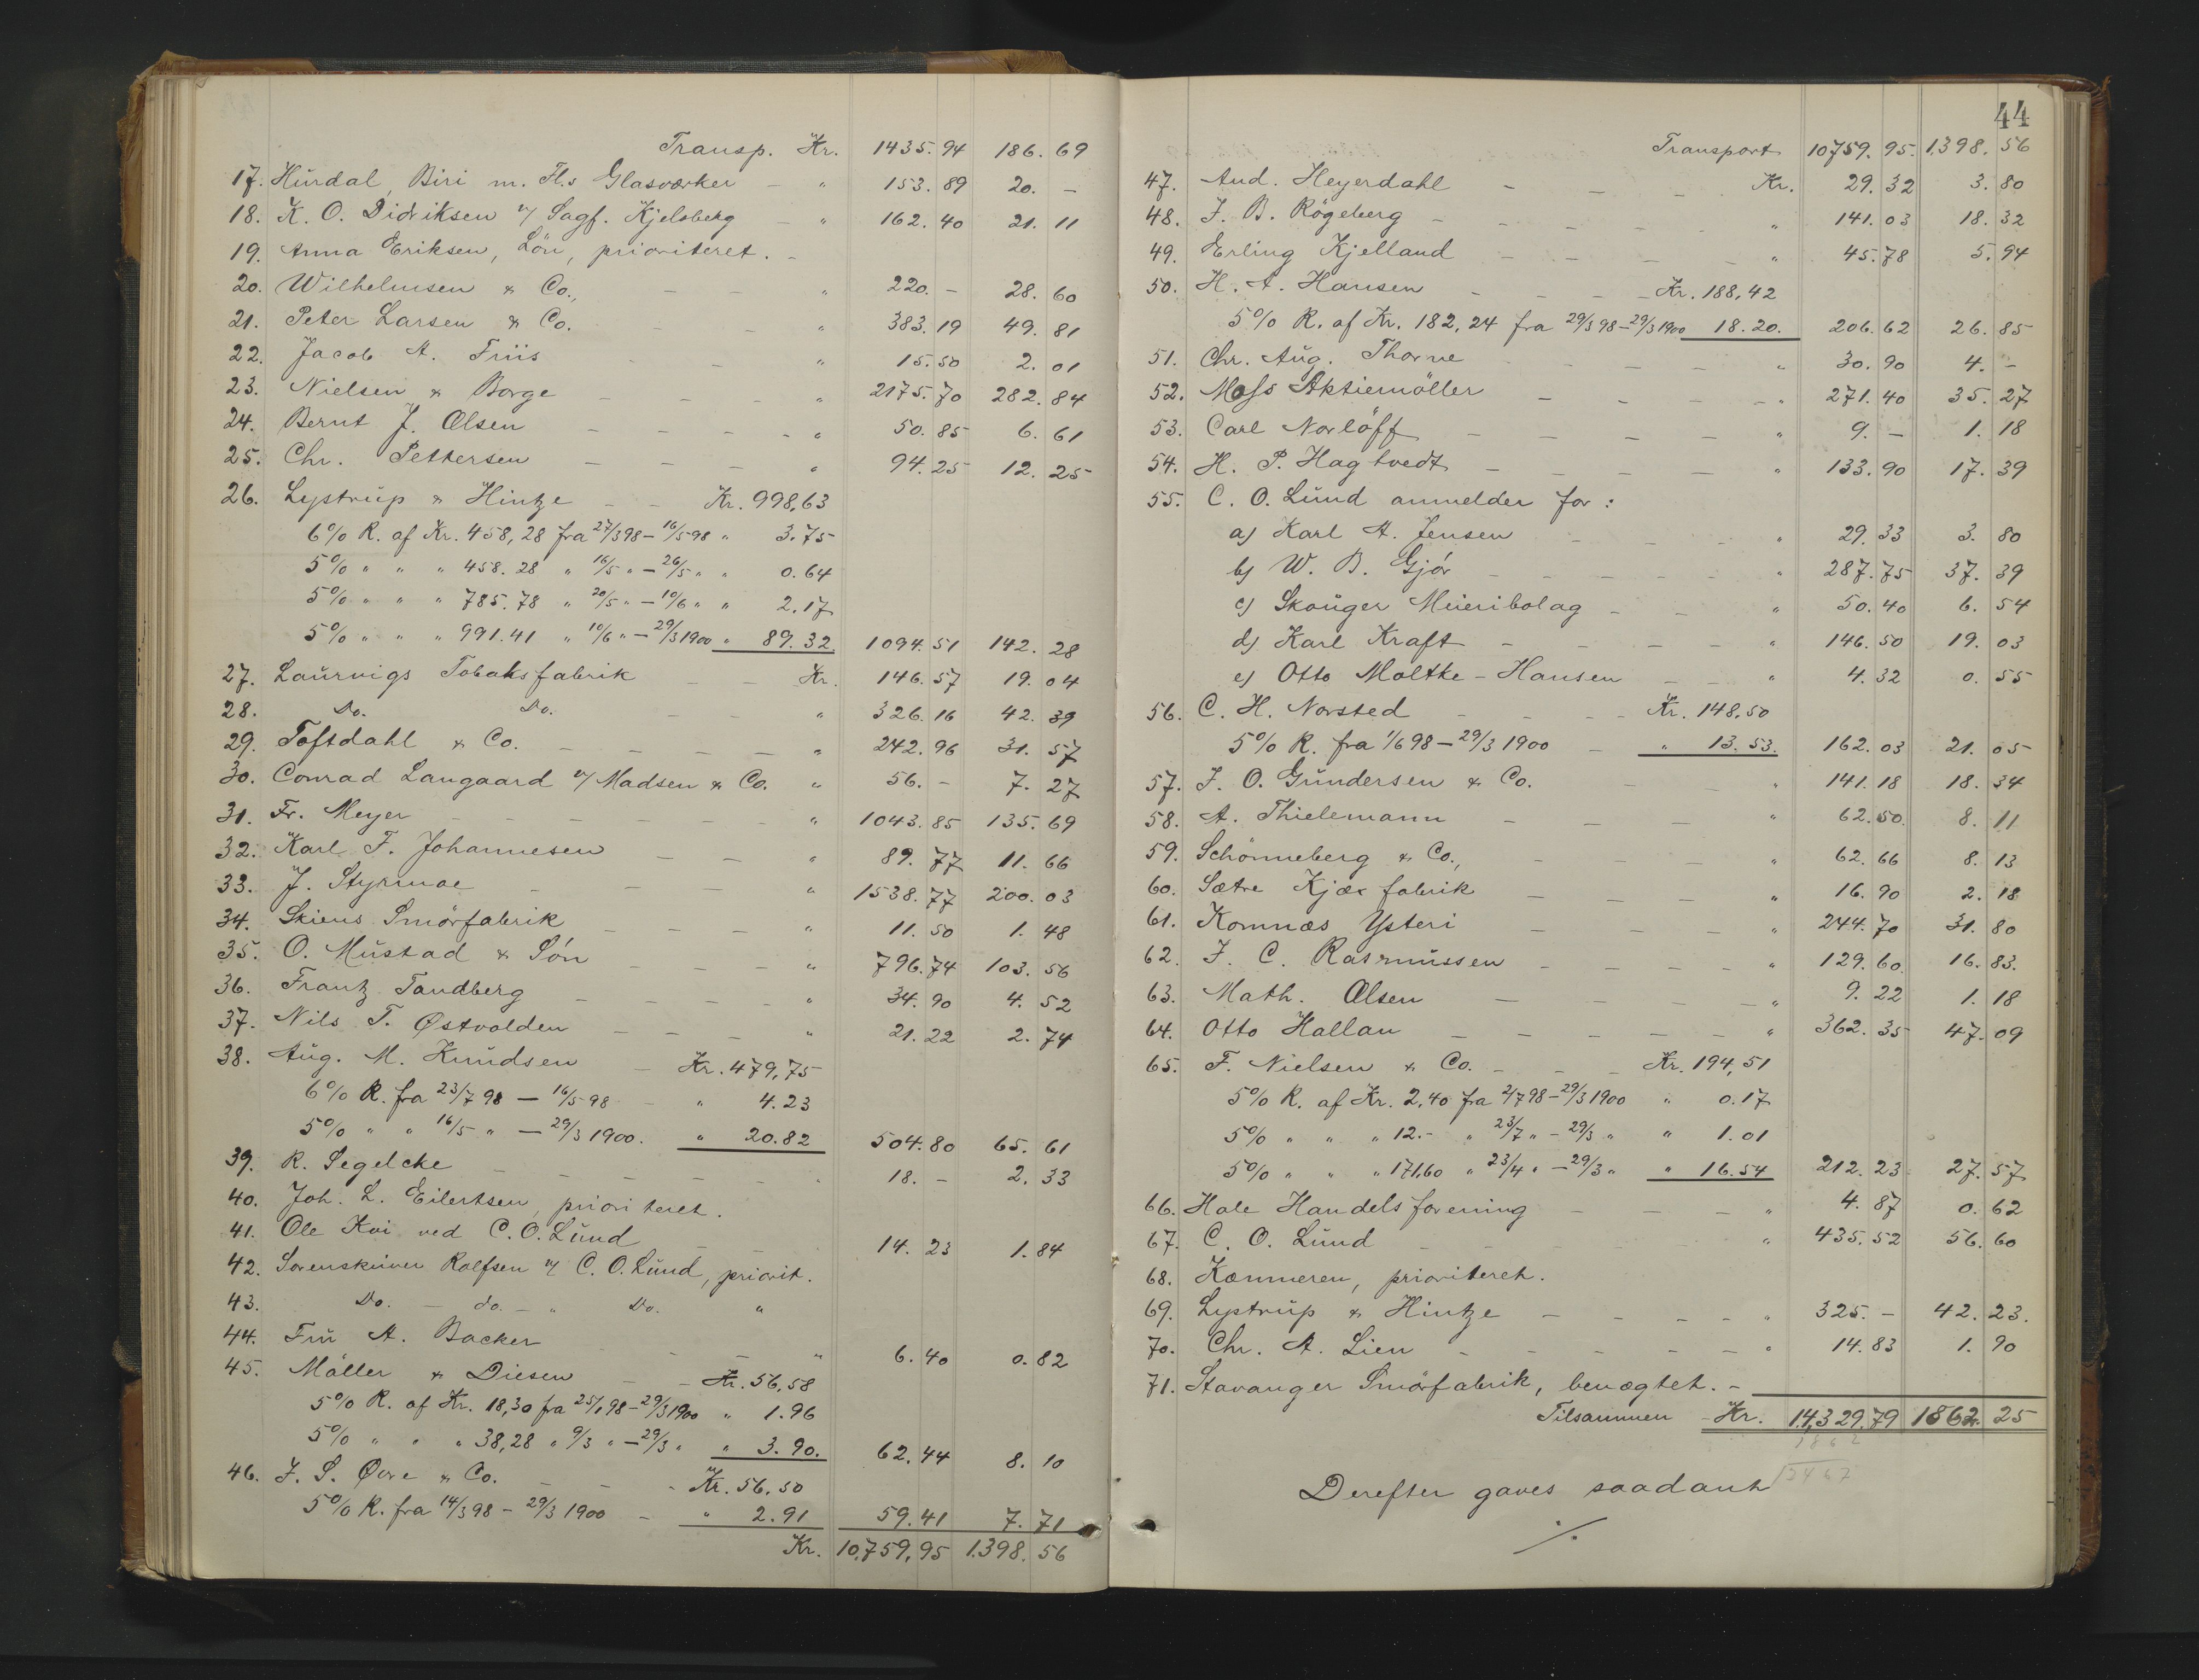 Transp. Kr. 1435.94 186.69
17. Hurdal, Biri m. Fl.s Glasværker - " 153.89 20.-
18. K. O. Didriksen v/ Sagf. Kjelsberg - " 162.40 21.11
19. Anna Eriksen, Lön, prioriteret. -
20. Wilhelmsen & Co., - - " 220.- 28.60
21. Peter Larsen & Co. - - " 383.19 49.81
22. Jacob A. Friis - - " 15.50 2.01
23. Nielsen & Borge - - - " 2175.70 282.84
24. Bernt J. Olsen - - - - " 50.85 6.61
25. Chr. Pettersen - - - " 94.25 12.25
26. Lystrup & Hintze - - Kr. 998,63
6% R. af Kr. 458,28 fra 27/3 98 - 16/5 98 " 3.75
5% " " " 458.28 " 16/5 " - 26/5 " " 0.64
5% " " " 785.78 " 20/5 " - 10/6 " " 2.17
5% " " " 991.41 " 10/6 " - 29/3 1900 " 89.32 1094.51 142.28
27. Laurvigs Tobaksfabrik - - Kr. 146.57 19.04
28. Do. Do. - - " 326.16 42.39
29. Toftdahl & Co. - - - - " 242.96 31.57
30. Conrad Langaard v/ Madsen & Co. " 56.- 7.27
31. Fr. Meyer - - - - - - " 1043.85 135.69
32. Karl F. Johannesen - - " 89.77 11.66
33. J. Styrmoe - - - " 1538.77 200.03
34. Skiens Smörfabrik - - - " 11.50 1.48
35. O. Mustad & Sön - - - " 796.74 103.56
36. Frantz Tandberg - - - - " 34.90 4.52
37. Nils T. Østvolden - - - " 21.22 2.74
38. Aug. M. Knudsen - Kr. 479,75
6% R. fra 23/7 98 - 16/5 98 - " 4.23
5% " " 16/5 " - 29/3 1900. " 20.82 504.80 65.61
39. R. Segelcke - - - - - - 18.- 2.33
40. Joh. L. Eilertsen, prioriteret.
41. Ole Kvi ved C. O. Lund - - - 14.23 1.84
42. Sorenskriver Rolfsen v/ C. O. Lund, priorit.
43. Do. - do. - " Do. "
44. Fru A. Backer - - " 6.40 0.82
45. Möller & Diesen - - Kr. 56,58
5% R. af Kr. 18,30 fra 25/1 98 - 29/3 1900 " 1.96
5% " " " 38,28 " 9/3 " - 29/3 " " 3.90. 62.44 8.10
46. J. S. Øvre & Co. - - - Kr. 56.50
5% R. fra 14/3 98 - 29/3 1900 - " 2.91 59.41 7.71
Kr. 10,759,95 1.398.56
44
Transport 10759.95. 1,398.56
47. Aud. Heyerdahl - - - Kr. 29.32 3.80
48. J. B. Rögeberg - - - - - " 141.03 18.32
49. Erling Kjelland - - - - " 45.78 5.94
50. H. A. Hansen - - - - Kr. 188,42
5% R. af Kr. 182,24 fra 29/3 98 - 29/3 1900 18.20. 206.62 26.85
51. Chr. Aug. Thorne - - - - " 30.90 4.-
52. Moss Aktiemöller - - - - " 271.40 35.27
53. Carl Norlöff - - - - " 9.- 1.18
54. H. P. Hagtvedt - - - - " 133.90 17.39
55. C. O. Lund anmelder for:
a) Karl A. Jensen - - - " 29.33 3.80
b) W. B. Gjör - - - - - " 287.75 37.39
c) Skouger Meieribolag - - " 50.40 6.54
d) Karl Kraft - - - - " 146.50 19.03
e) Otto Moltke-Hansen - - " 4.32 0.55
56. C. H. Norsted - - - - Kr. 148,50
5% R. fra 1/6 98 - 29/3 1900 - " 13.53. 162.03 21.05
57. J. O. Gundersen & Co. - - " 141.18 18.34
58. A. Thielemann - - - " 62.50. 8.11
59. Schönneberg & Co., - - - " 62.66 8.13
60. Sætre Kjæxfabrik - - - " 16.90 2.18
61. Komnæs Ysteri - - - " 244.70 31.80
62. J. C. Rasmussen - - - - " 129.60. 16.83.
63. Math. Olsen - - - - " 9.22 1.18
64. Otto Hallan - - - - - " 362.35 47.09
65. F. Nielsen & Co. - - - Kr. 194,51
5% R. af Kr. 2,40 fra 2/7 98 - 29/3 1900 " 0.17
5% " " " 12.- " 23/7 " - 29/3 " " 1.01
5% " " " 171,60 " 23/4 " - 29/3 " " 16.54 212.23 27.57
66. Hole Handelsforening - - - " 4.87 0.62
67. C. O. Lund - - - - - " 435.52 56.60
68. Kæmneren, prioriteret.
69. Lystrup & Hintze - - - - " 325.- 42.23.
70. Chr. A. Lien - - - - - " 14.83 1.90
71. Stavanger Smörfabrik, benægtet. -
Tilsammen - Kr. 14,329.79 1862.25
1862
2467
Derefter gaves saadant
./.